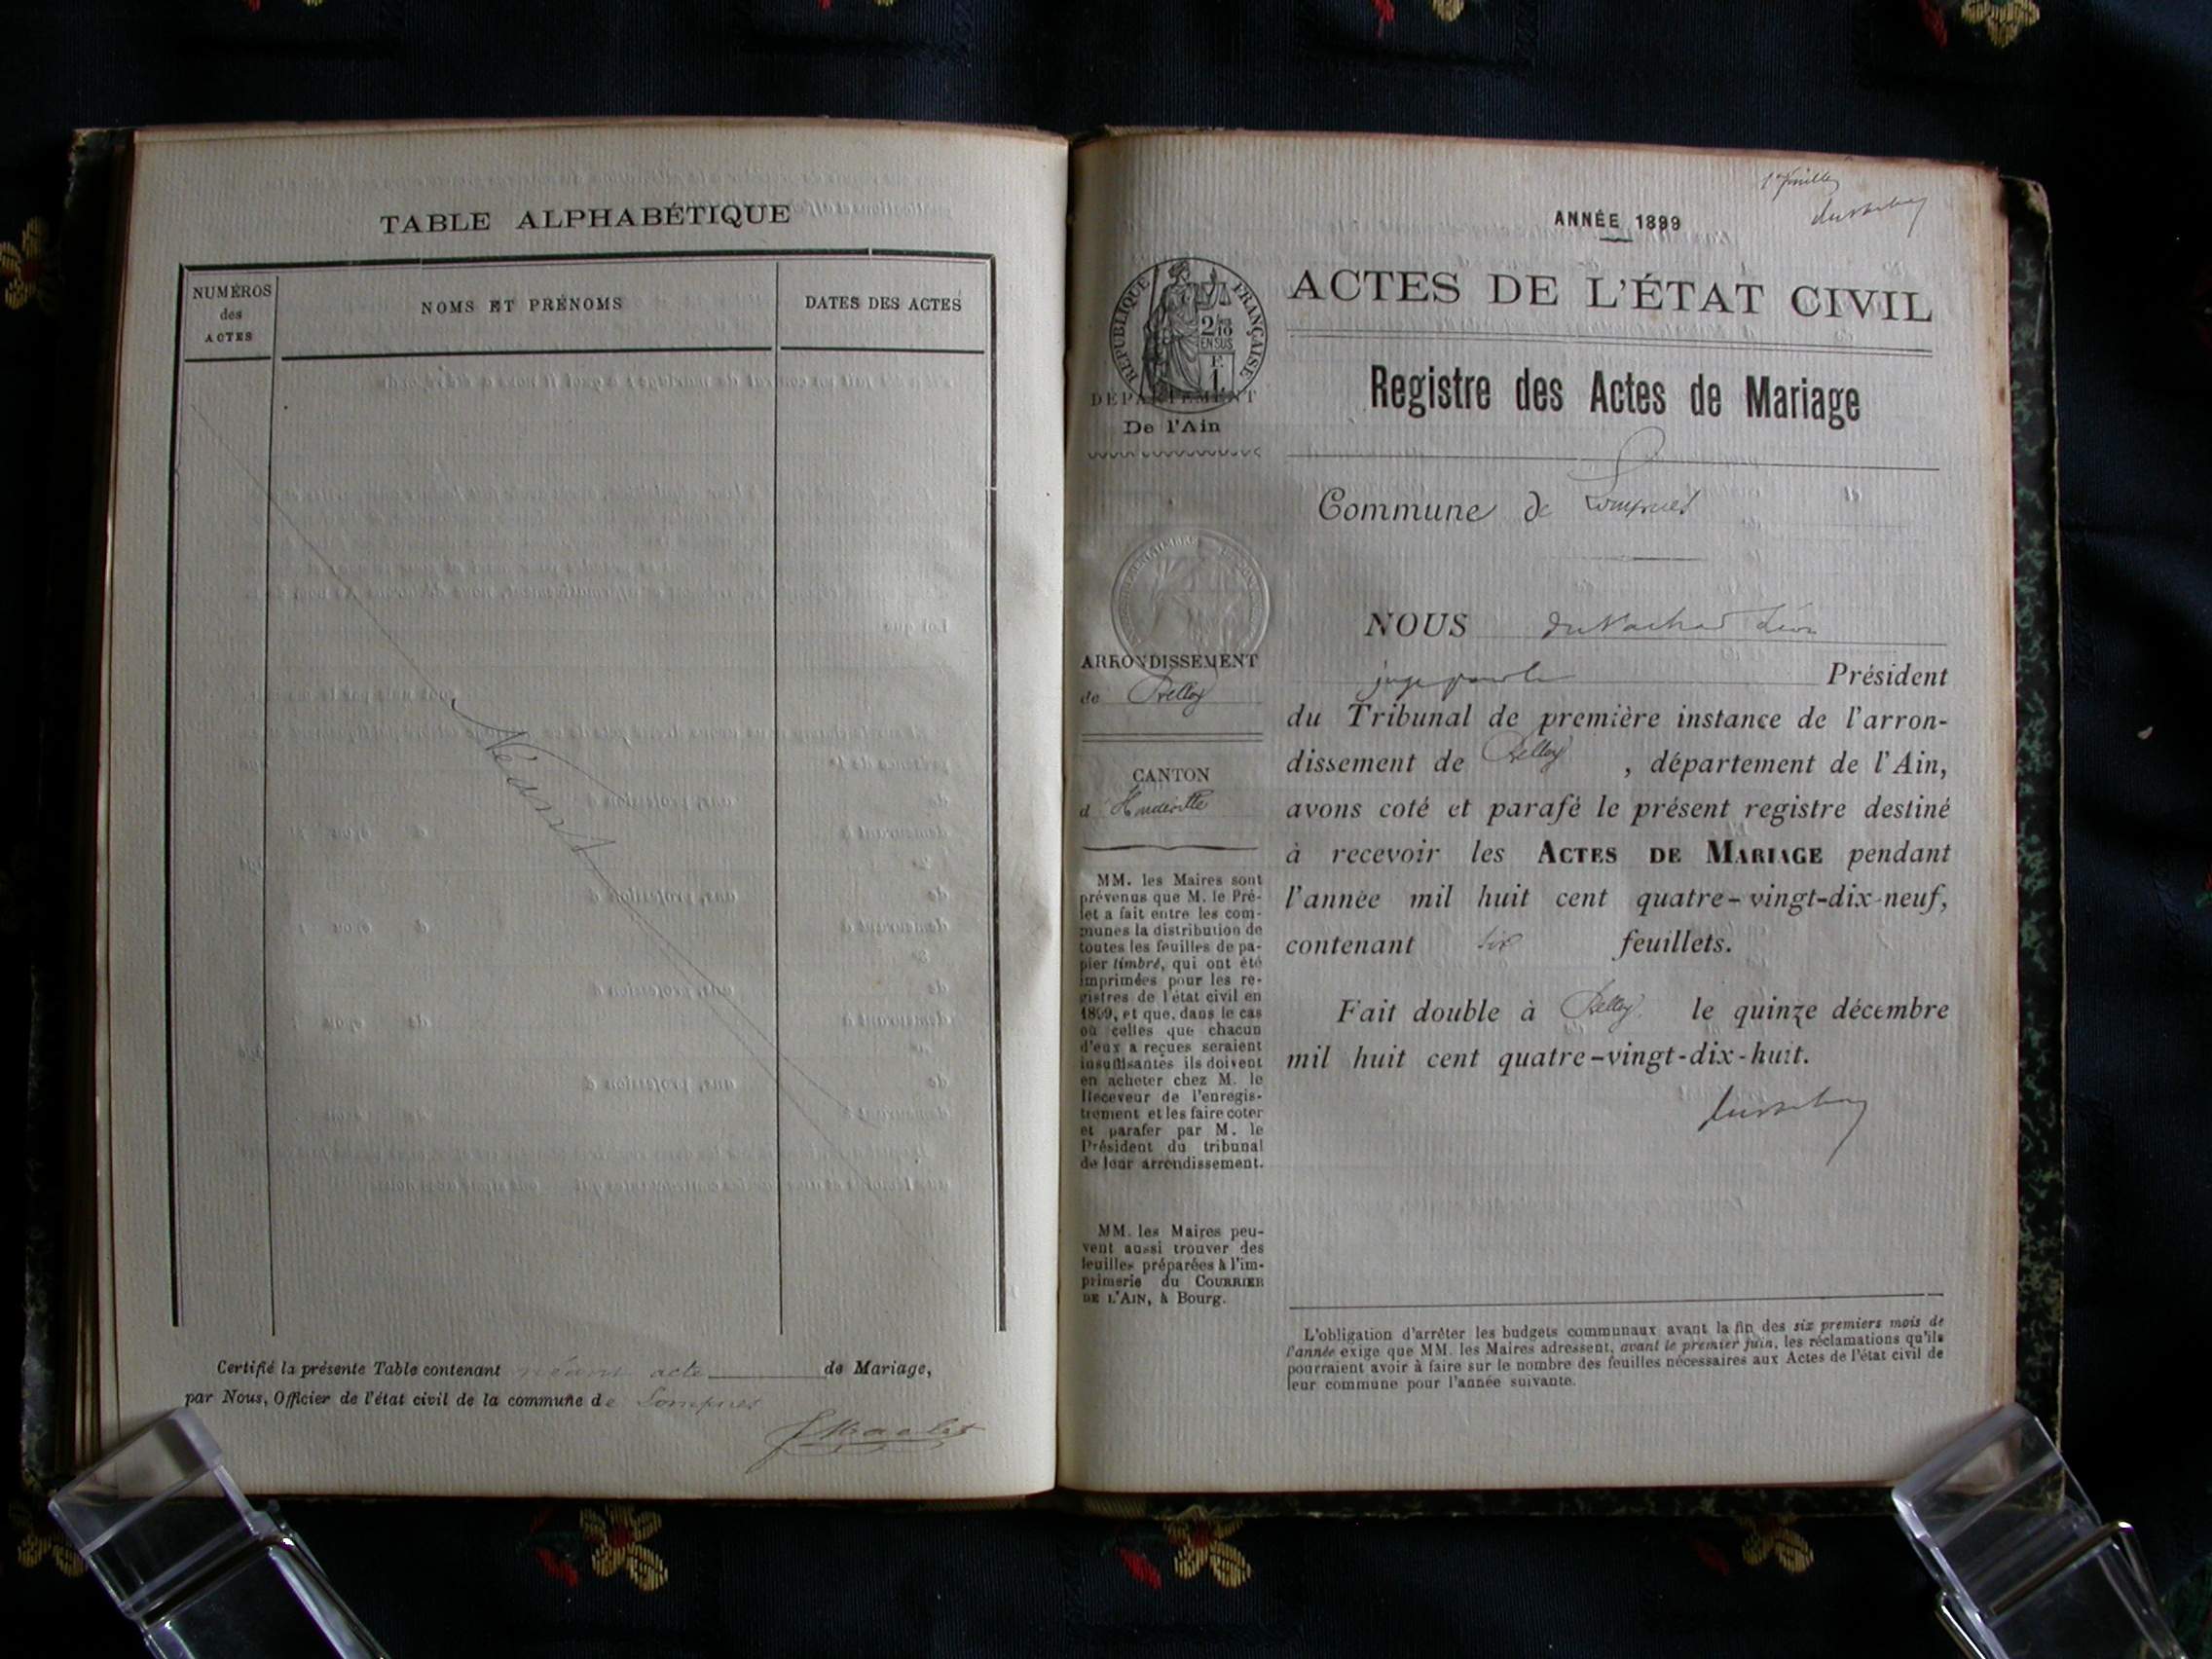 TABLE ALPHABÉTIQUE
NUMÉROS
des
ACTES
NOMS ET PRÉNOMS
DATES DES ACTES
Néant
Certifié la présente Table contenant néant acte de Mariage,
par Nous, Officier de l'état civil de la commune de Lompnes
1er feuillet
ANNÉE 1899
RÉPUBLIQUE FRANÇAISE
2/10
EN SUS
F
1
DÉPARTEMENT
De l'Ain
ARRONDISSEMENT
de Belley
CANTON
d' Hauteville
MM. les Maires sont
prévenus que M. le Pré-
fet a fait entre les com-
munes la distribution de
toutes les feuilles de pa-
pier timbré, qui ont été
imprimées pour les re-
gistres de l'état civil en
1899, et que, dans le cas
où celles que chacun
d'eux a reçues seraient
insuffisantes ils doivent
en acheter chez M. le
Receveur de l'enregis-
trement et les faire coter
et parafer par M. le
Président du tribunal
de leur arrondissement.
MM. les Maires peu-
vent aussi trouver des
feuilles préparées à l'im-
primerie du COURRIER
DE L'AIN, à Bourg.
ACTES DE L'ÉTAT CIVIL
Registre des Actes de Mariage
Commune de Lompnes
NOUS Léon
juge Président
du Tribunal de première instance de l'arron-
dissement de Belley, département de l'Ain,
avons coté et parafé le présent registre destiné
à recevoir les ACTES DE MARIAGE pendant
l'année mil huit cent quatre-vingt-dix-neuf,
contenant six feuillets.
Fait double à Belley. le quinze décembre
mil huit cent quatre-vingt-dix-huit.
L'obligation d'arrêter les budgets communaux avant la fin des six premiers mois de
l'année exige que MM. les Maires adressent, avant le premier juin, les réclamations qu'ils
pourraient avoir à faire sur le nombre des feuilles nécessaires aux Actes de l'état civil de
leur commune pour l'année suivante.